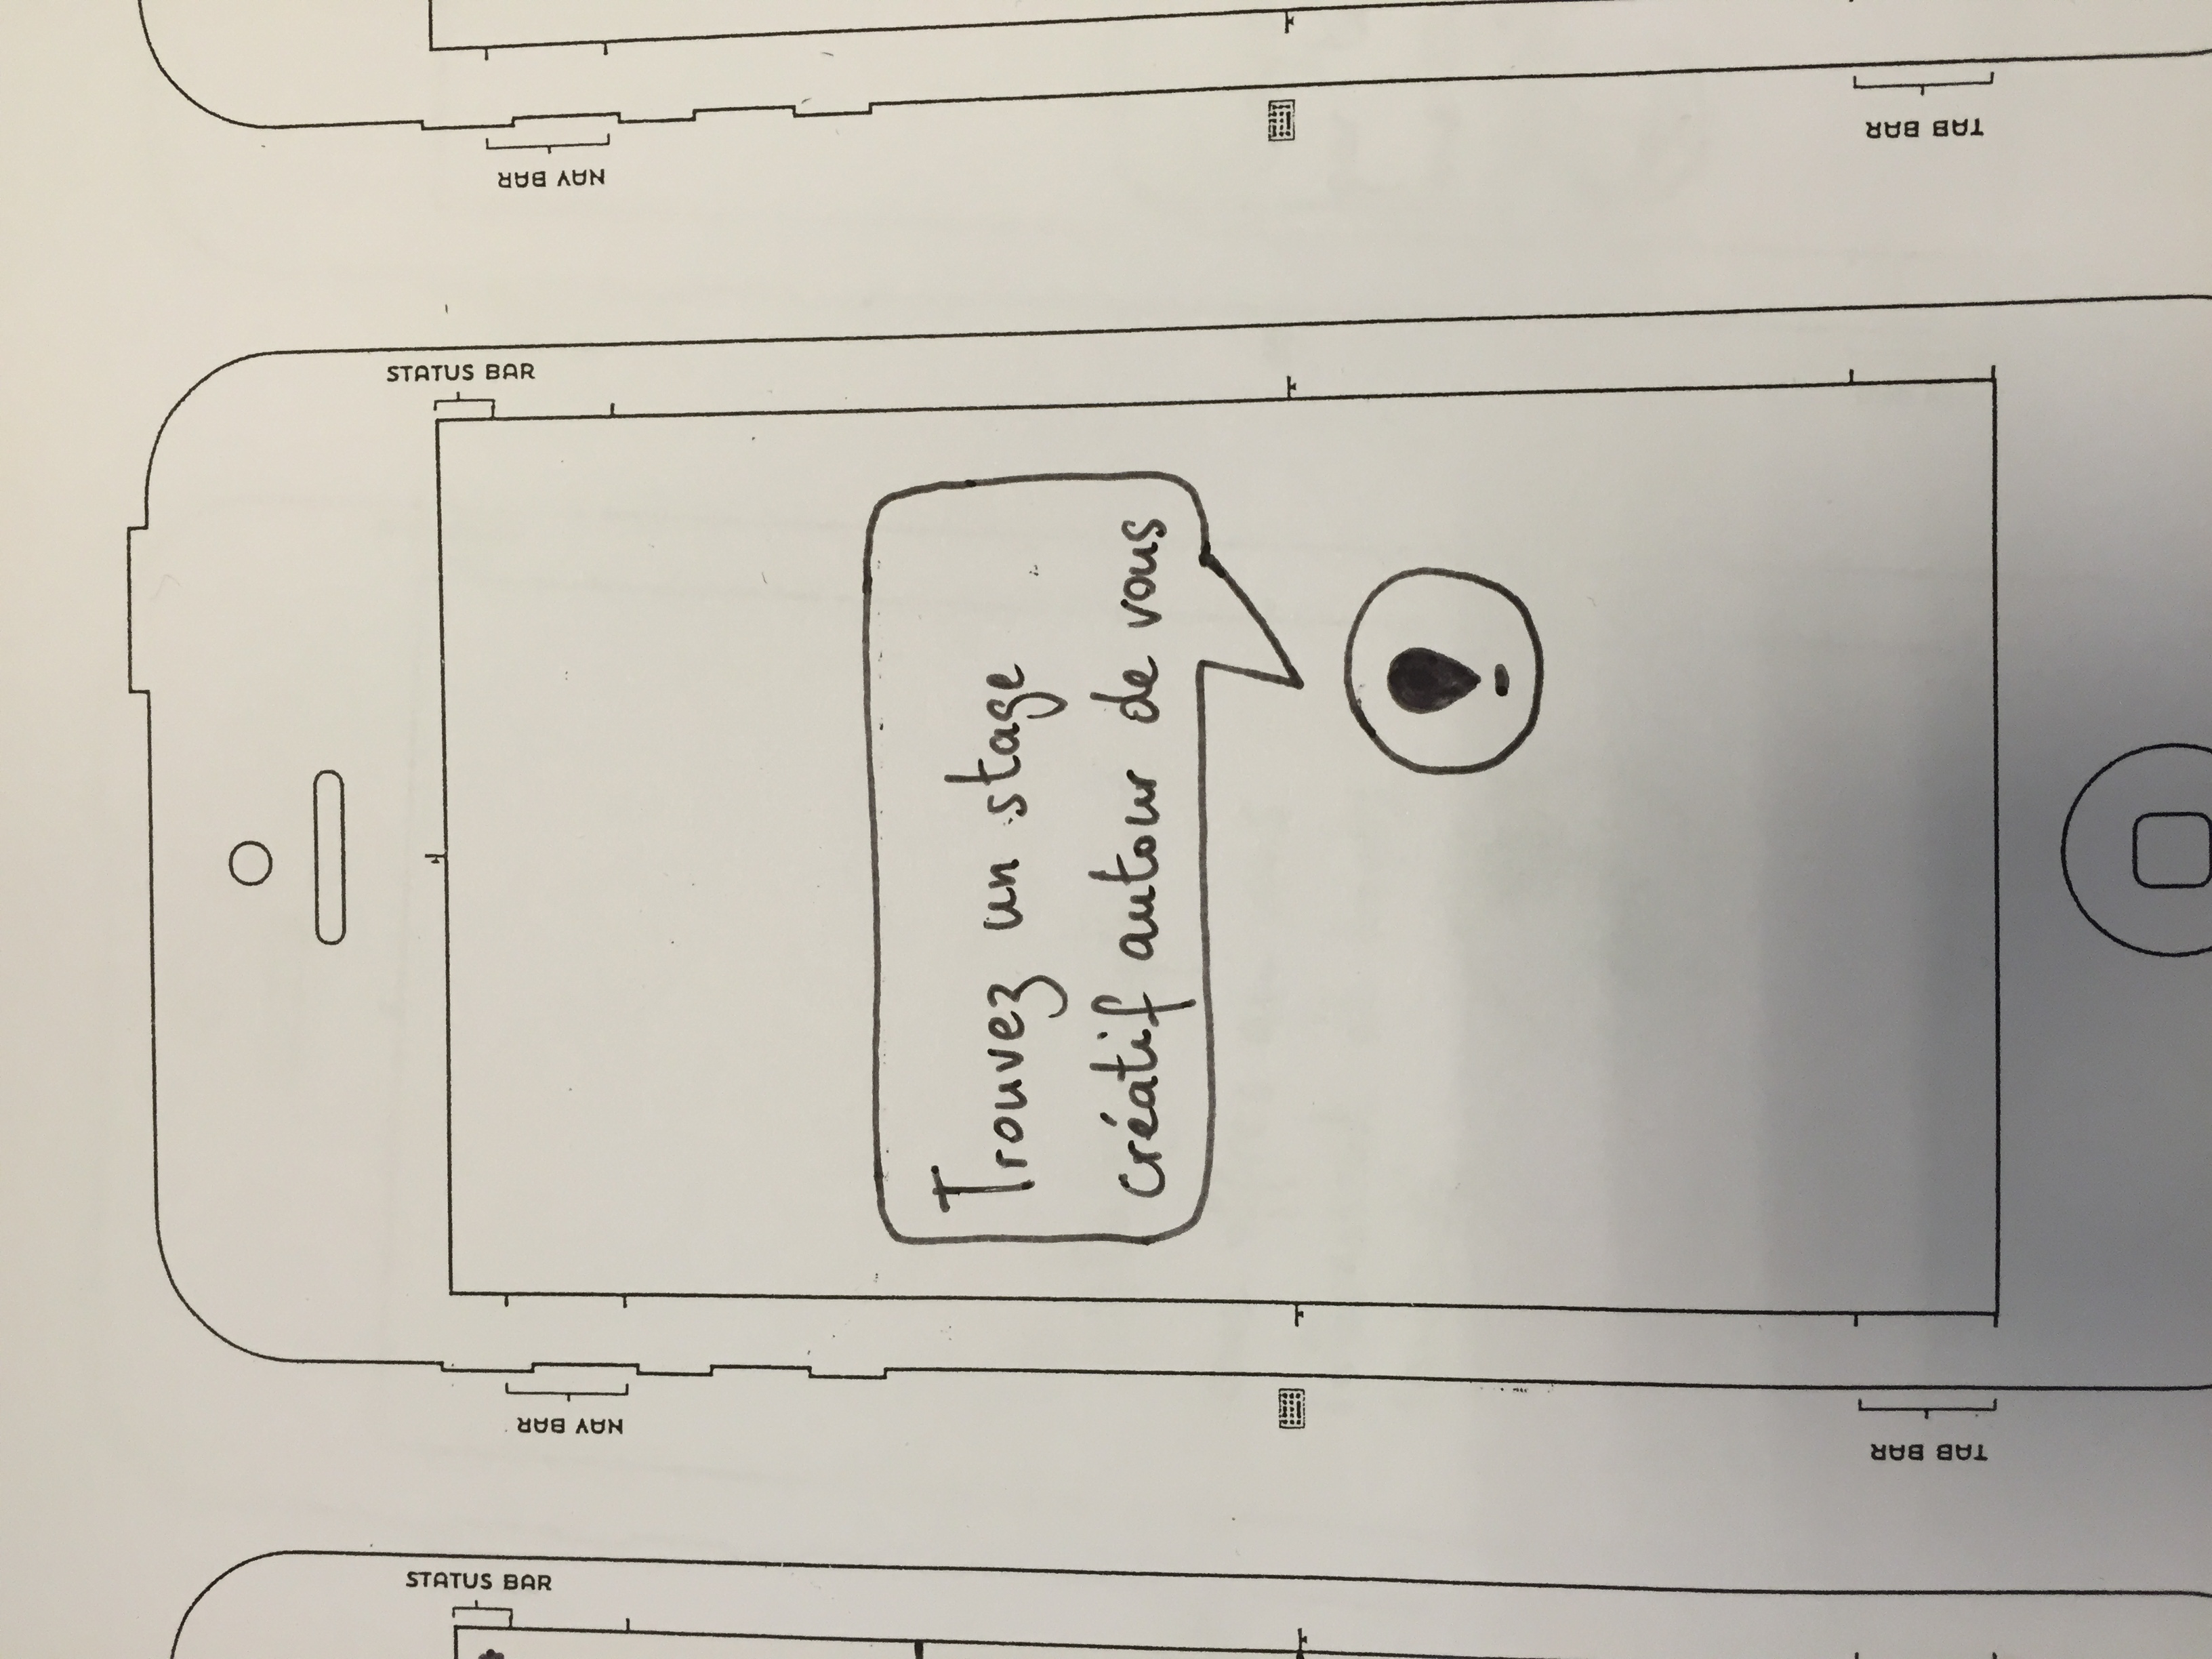 STATUS BAR
STATUS BAR
NAV BAR
NAV BAR
Trouvez un stage
créatif autour de vous
TAB BAR
TAB BAR